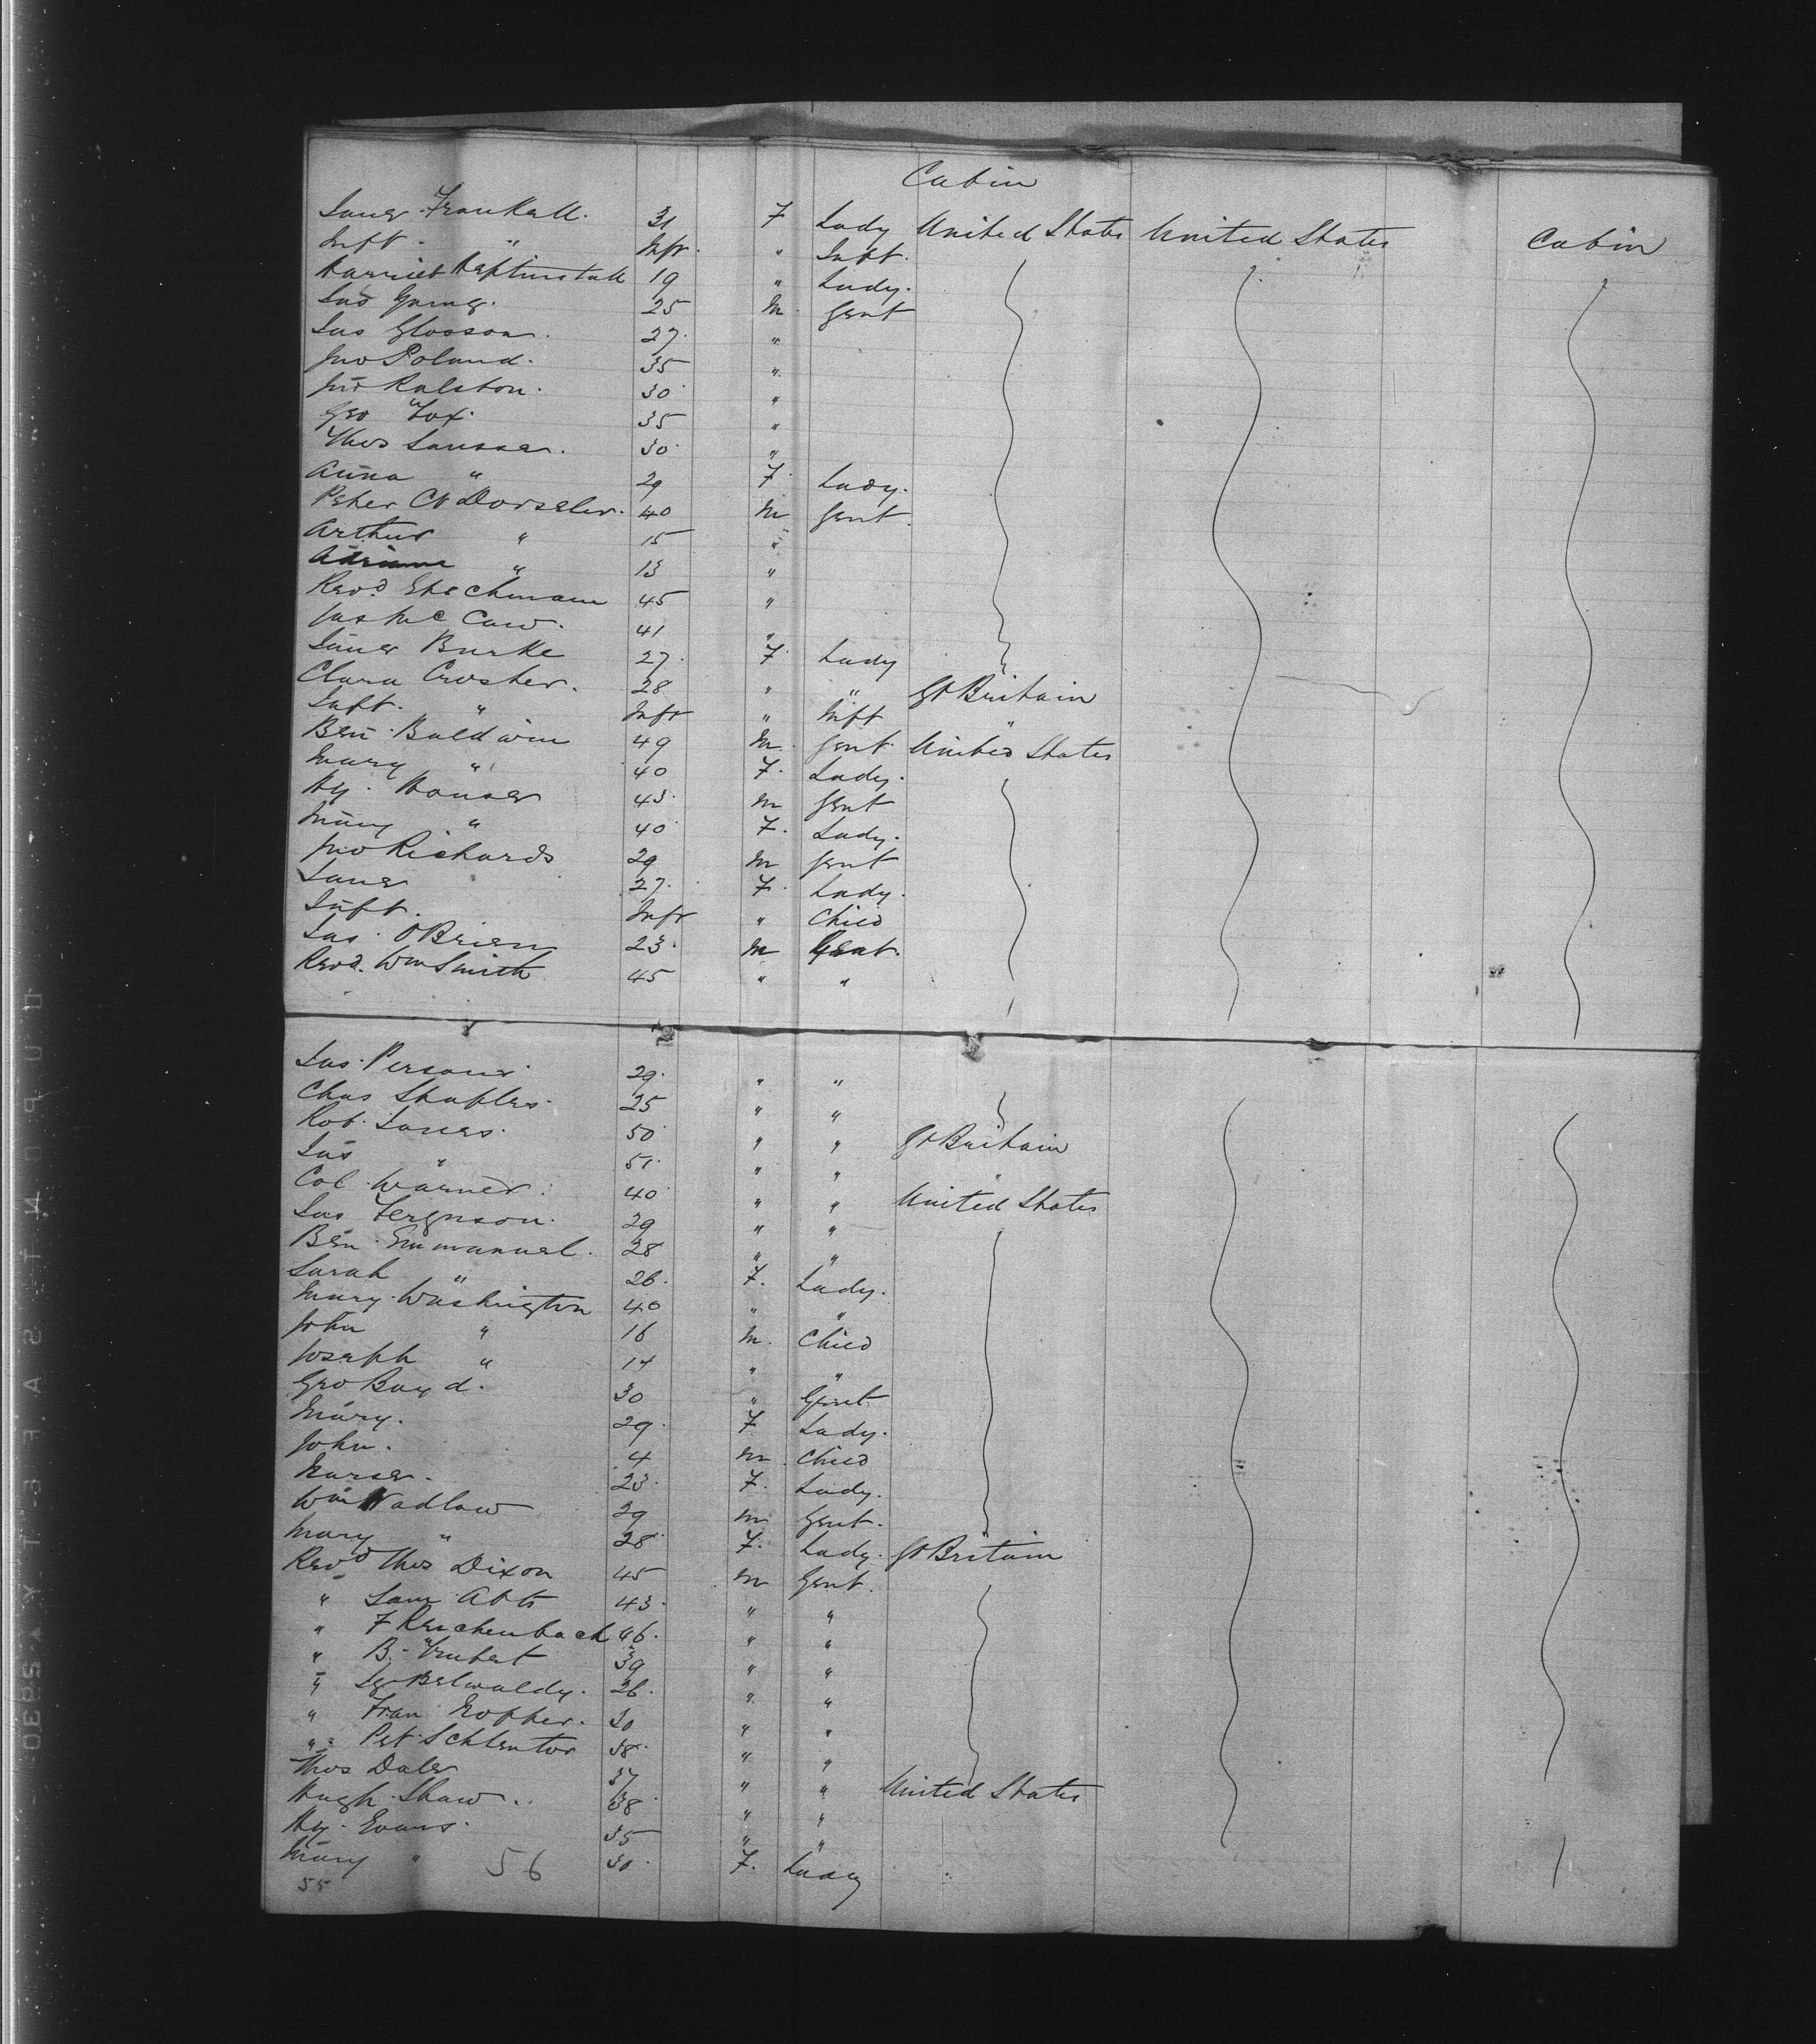 Cabin
Jane Frankall. 31 F Lady United States United States Cabin
Inft. " Inft. " Inft.
Harriet Heptinstall 19 " Lady.
Jas Young. 25 M. Gent
Jas Glosson. 27. "
Jno Poland. 35 "
Jno Ralston. 30 "
Geo Fox. 35 "
Thos 30. "
Anna " 29 F. Lady.
Peter 40 M Gent.
Arthur " 15 "
" 13 "
Revd. 45 "
Jas McCaw. 41 "
Jane Burke 27. F. Lady
Clara Crosher. 28 " " Gt Britain
Inft. " Inft " Inft "
Ben. Baldwin 49 M. Gent. United States
Mary " 40 F. Lady.
Hy. Houser 43. M Gent
Mary " 40 F. Lady.
Jno Richards 29 M Gent
Jane 27. F. Lady.
Inft. Inft " Child
Jas. OBrien 23. M Gent.
Revd. Wm Smith 45 " "
Jas. Persons. 29. " "
Chas Shaples. 25 " "
Rob. Jones. 50 " " Gt Britain
Jas " 51. " " "
Col. Warner. 40 " " United States
Jas Ferguson. 29 " "
Ben. Emmanuel. 28 " "
Sarah " 26. F. Lady.
Mary Washington 40 " "
John " 16 M. Child
Joseph " 14 " "
Geo Boyd. 30 " Gent.
Mary. 29. F Lady.
John. 4 M. Child
Nurse. 23. F. Lady.
Wm Wadlow 29 M Gent.
Mary " 28 F. Lady. Gt Britain
Revd Thos Dixon 45 M Gent.
" Sam Abts 43. " "
" F Reichenbach 46. " "
" B. 39 " "
" 26. " "
" Fran 30 " "
" Pet. Schlentor 38. " "
Thos Dale 37 " " United States
Hugh Shaw.. 38 " "
Hy. Evans. 35 " "
Mary " 30. F. Lady
55 56